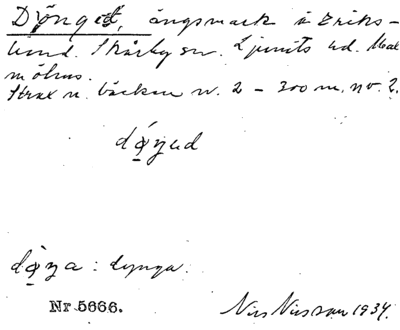 Dönget, ängsmark i Eriks-
lund. Skårby sn. Ljunits hd. Mal
möhus.
Strax n. bäcken n. 2 – 300 m. nv. 2.
döŋed
döŋa : dynga.
Nr 5666.
Nils Nilsson 1934.